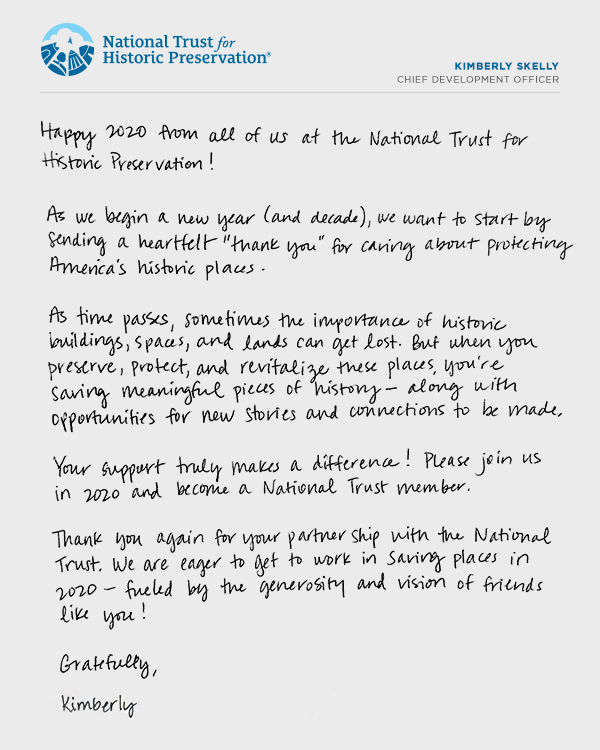 National Trust for
Historic Preservation®
KIMBERLY SKELLY
CHIEF DEVELOPMENT OFFICER
Happy 2020 from all of us at the National Trust for
Historic Preservation!
As we begin a new year (and decade), we want to start by
sending a heartfelt "thank you" for caring about protecting
America's historic places.
As time passes, sometimes the importance of historic
buildings, spaces, and lands can get lost. But when you
preserve, protect, and revitalize these places, you're
saving meaningful pieces of history — along with
opportunities for new stories and connections to be made.
Your support truly makes a difference! Please join us
in 2020 and become a National Trust member.
Thank you again for your partnership with the National
Trust. We are eager to get to work in saving places in
2020 — fueled by the generosity and vision of friends
like you!
Gratefully,
Kimberly